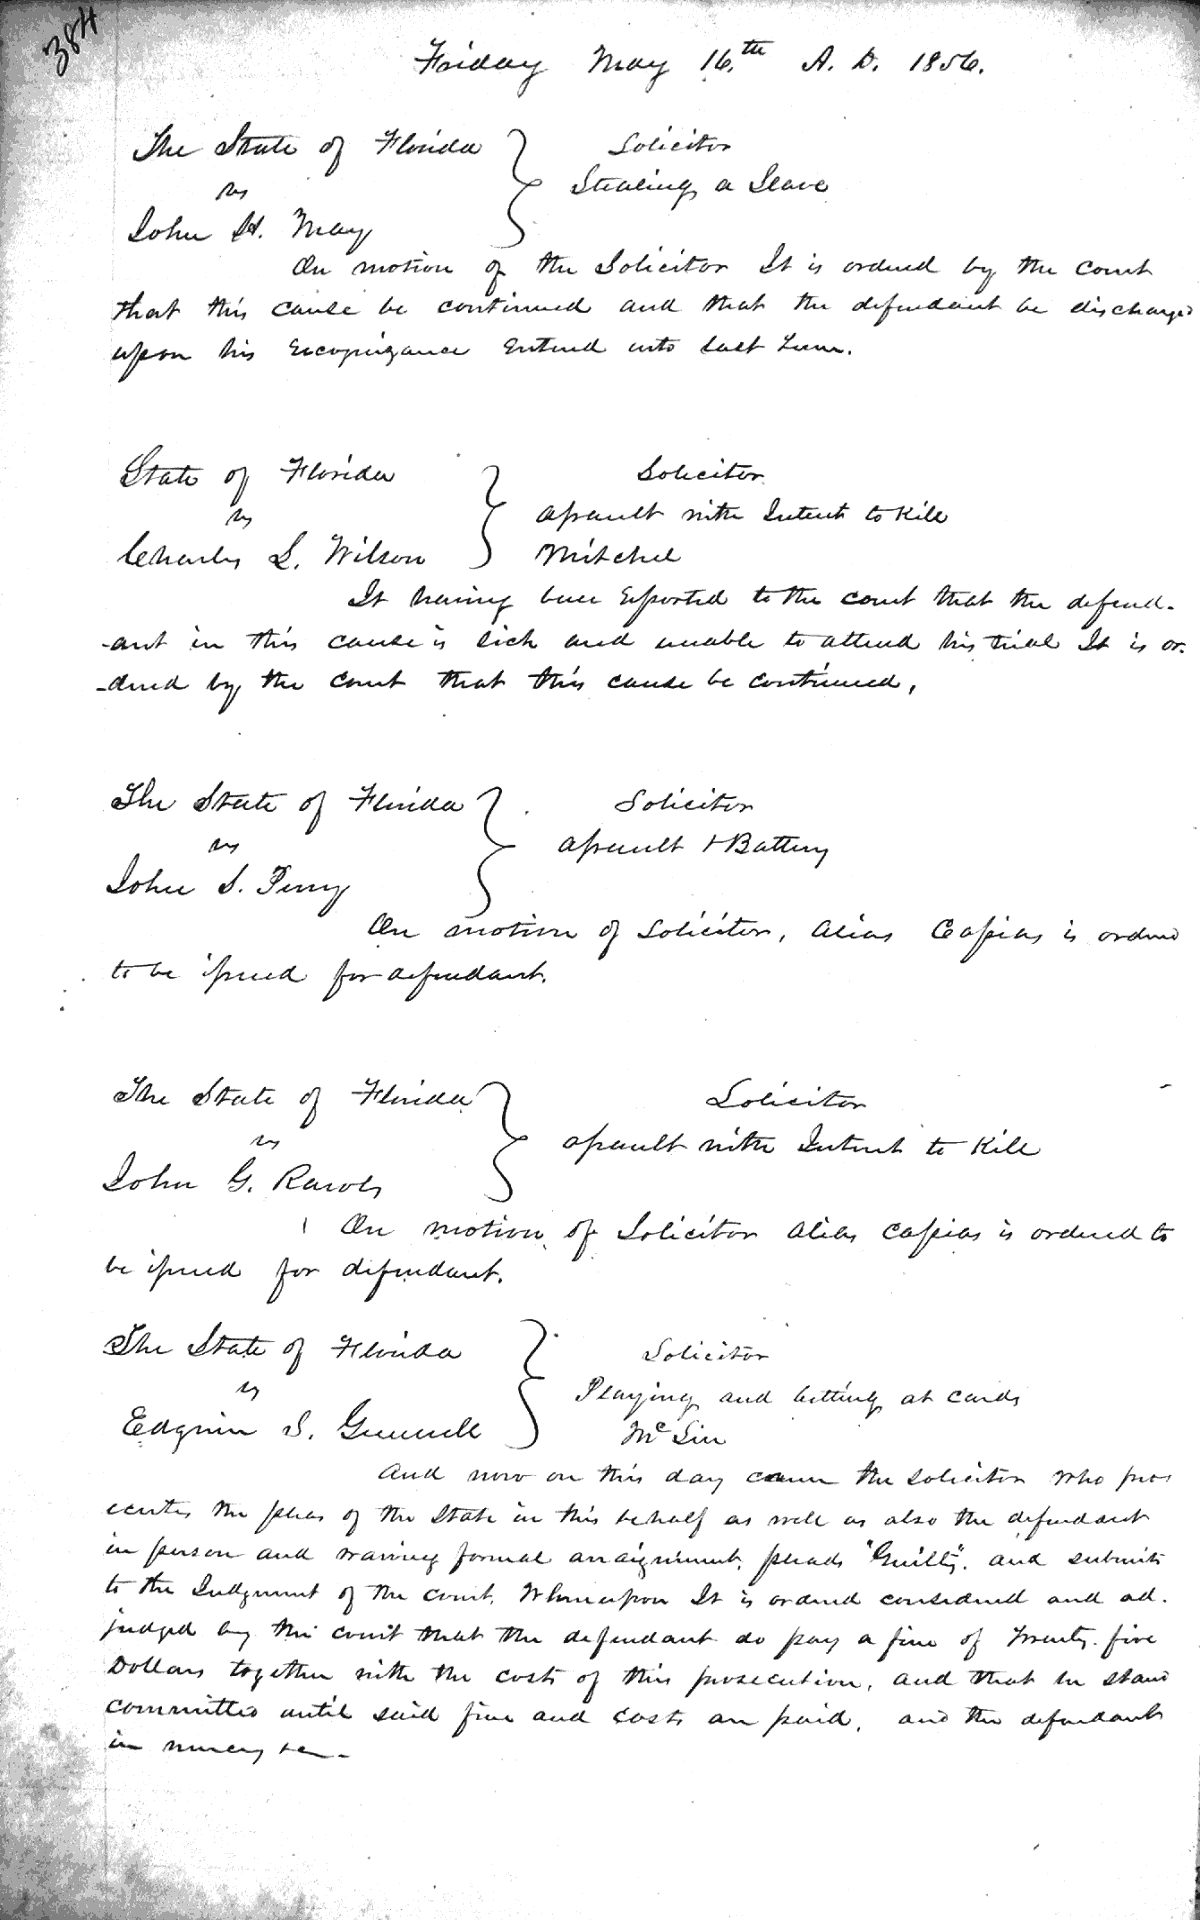 384
Friday May 16th A. D. 1856.
The State of Florida } Solicitor
vs Stealing a Slave
John H. May
On motion of the Solicitor It is ordered by the court
that this cause be continued and that the defendant be discharged
upon his recognizance entered into last Term.
State of Florida } Solicitor
vs assault with Intent to Kill
Charles L. Wilson Mitchel
It having been reported to the court that the defend-
-ant in this cause is sick and unable to attend his trial It is or-
-dered by the court that this cause be continued,
The State of Florida } Solicitor
vs assault & Battery
John S. Perry
On motion of Solicitor, alias Capias is ordered
to be issued for defendant.
The State of Florida } Solicitor
vs assault with Intent to Kill
John G. Rawls
On motion of Solicitor alias capias is ordered to
be issued for defendant.
The State of Florida } Solicitor
vs Playing and betting at cards
S. Mc
And now on this day came the solicitor who pros
ecutes the pleas of the State in this behalf as well as also the defendant
in person and waiving formal arraignment, pleads "Guilty". and submits
to the Judgment of the court, Whereupon It is ordered considered and ad-
judged by the court that the defendant do pay a fine of Twenty-five
Dollars together with the costs of this prosecution, and that he stand
committed until said fine and costs are paid, and the defendant
in mercy &c-